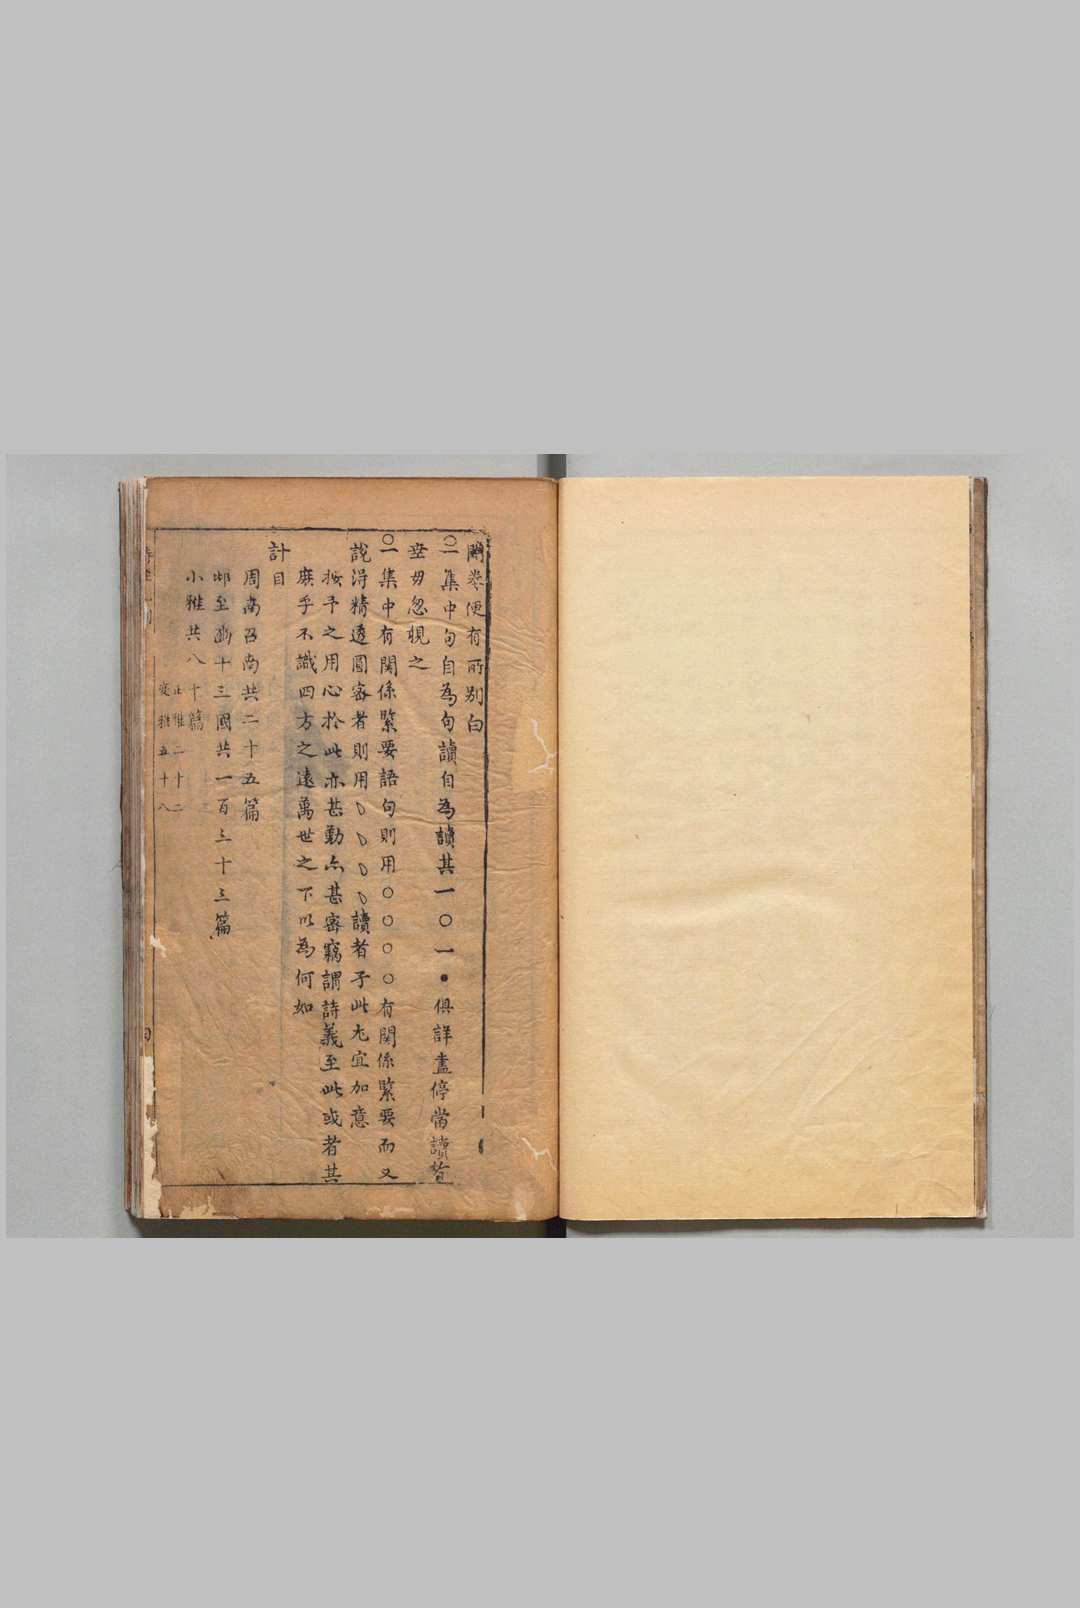 開卷便有所別白
○一集中句自為句讀自為讀其一○一●俱詳盡停當讀者
毋忽視之
○一集中有關係緊要語句則用○○○○有關係緊要而又
說得精透圓密者則用﹅﹅﹅﹅讀者于此尤宜加意
按予之用心於此亦甚勤亦甚密竊謂詩義至此或者其
庶乎不識四方之遠萬世之下以為何如
計目
周南召南共二十五篇
邶至豳十三國共一百三十三篇
小雅共八十篇
正雅二十二
變雅五十八